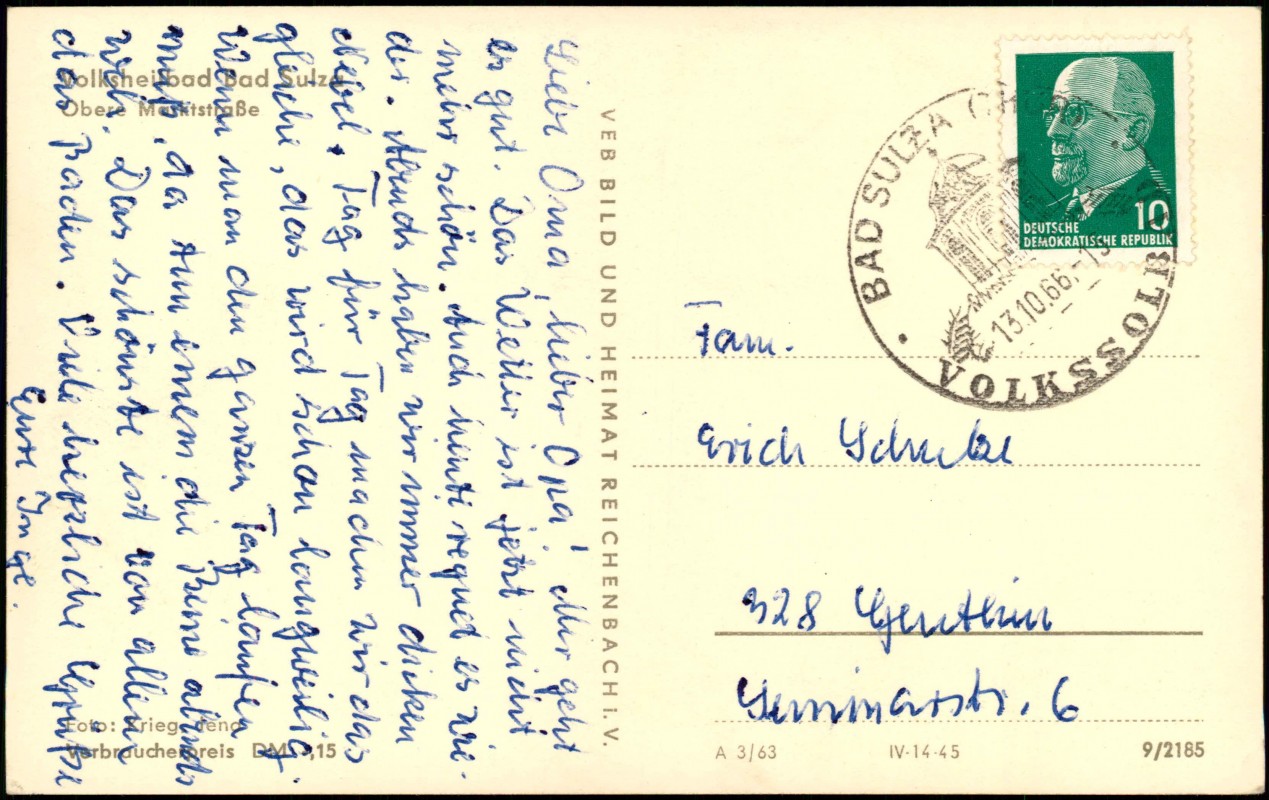 Volksheilbad Bad Sulza
Obere Marktstraße
Liebe Oma, lieber Opa! Mir geht
es gut. Das Wetter ist jetzt nicht
mehr schön. Auch heute regnet es wie-
der. Abends haben wir immer dicken
Nebel. Tag für Tag machen wir das
gleiche, das wird schon langweilig.
Wenn man den ganzen Tag laufen
muß, da tun einem die Beine abends
weh. Das schönste ist von allem
das Baden. Viele herzliche Grüße
Eure Inge.
Foto: Krieg Jena
Verbraucherpreis DM 0,15
VEB BILD UND HEIMAT REICHENBACH I. V.
10
DEUTSCHE
DEMOKRATISCHE REPUBLIK
BAD SULZA
13.10.66.-15
VOLKSSOLBAD
Fam.
Erich Schulze
328 Genthin
Seminarstr. 6
A 3/63 IV-14-45 9/2185